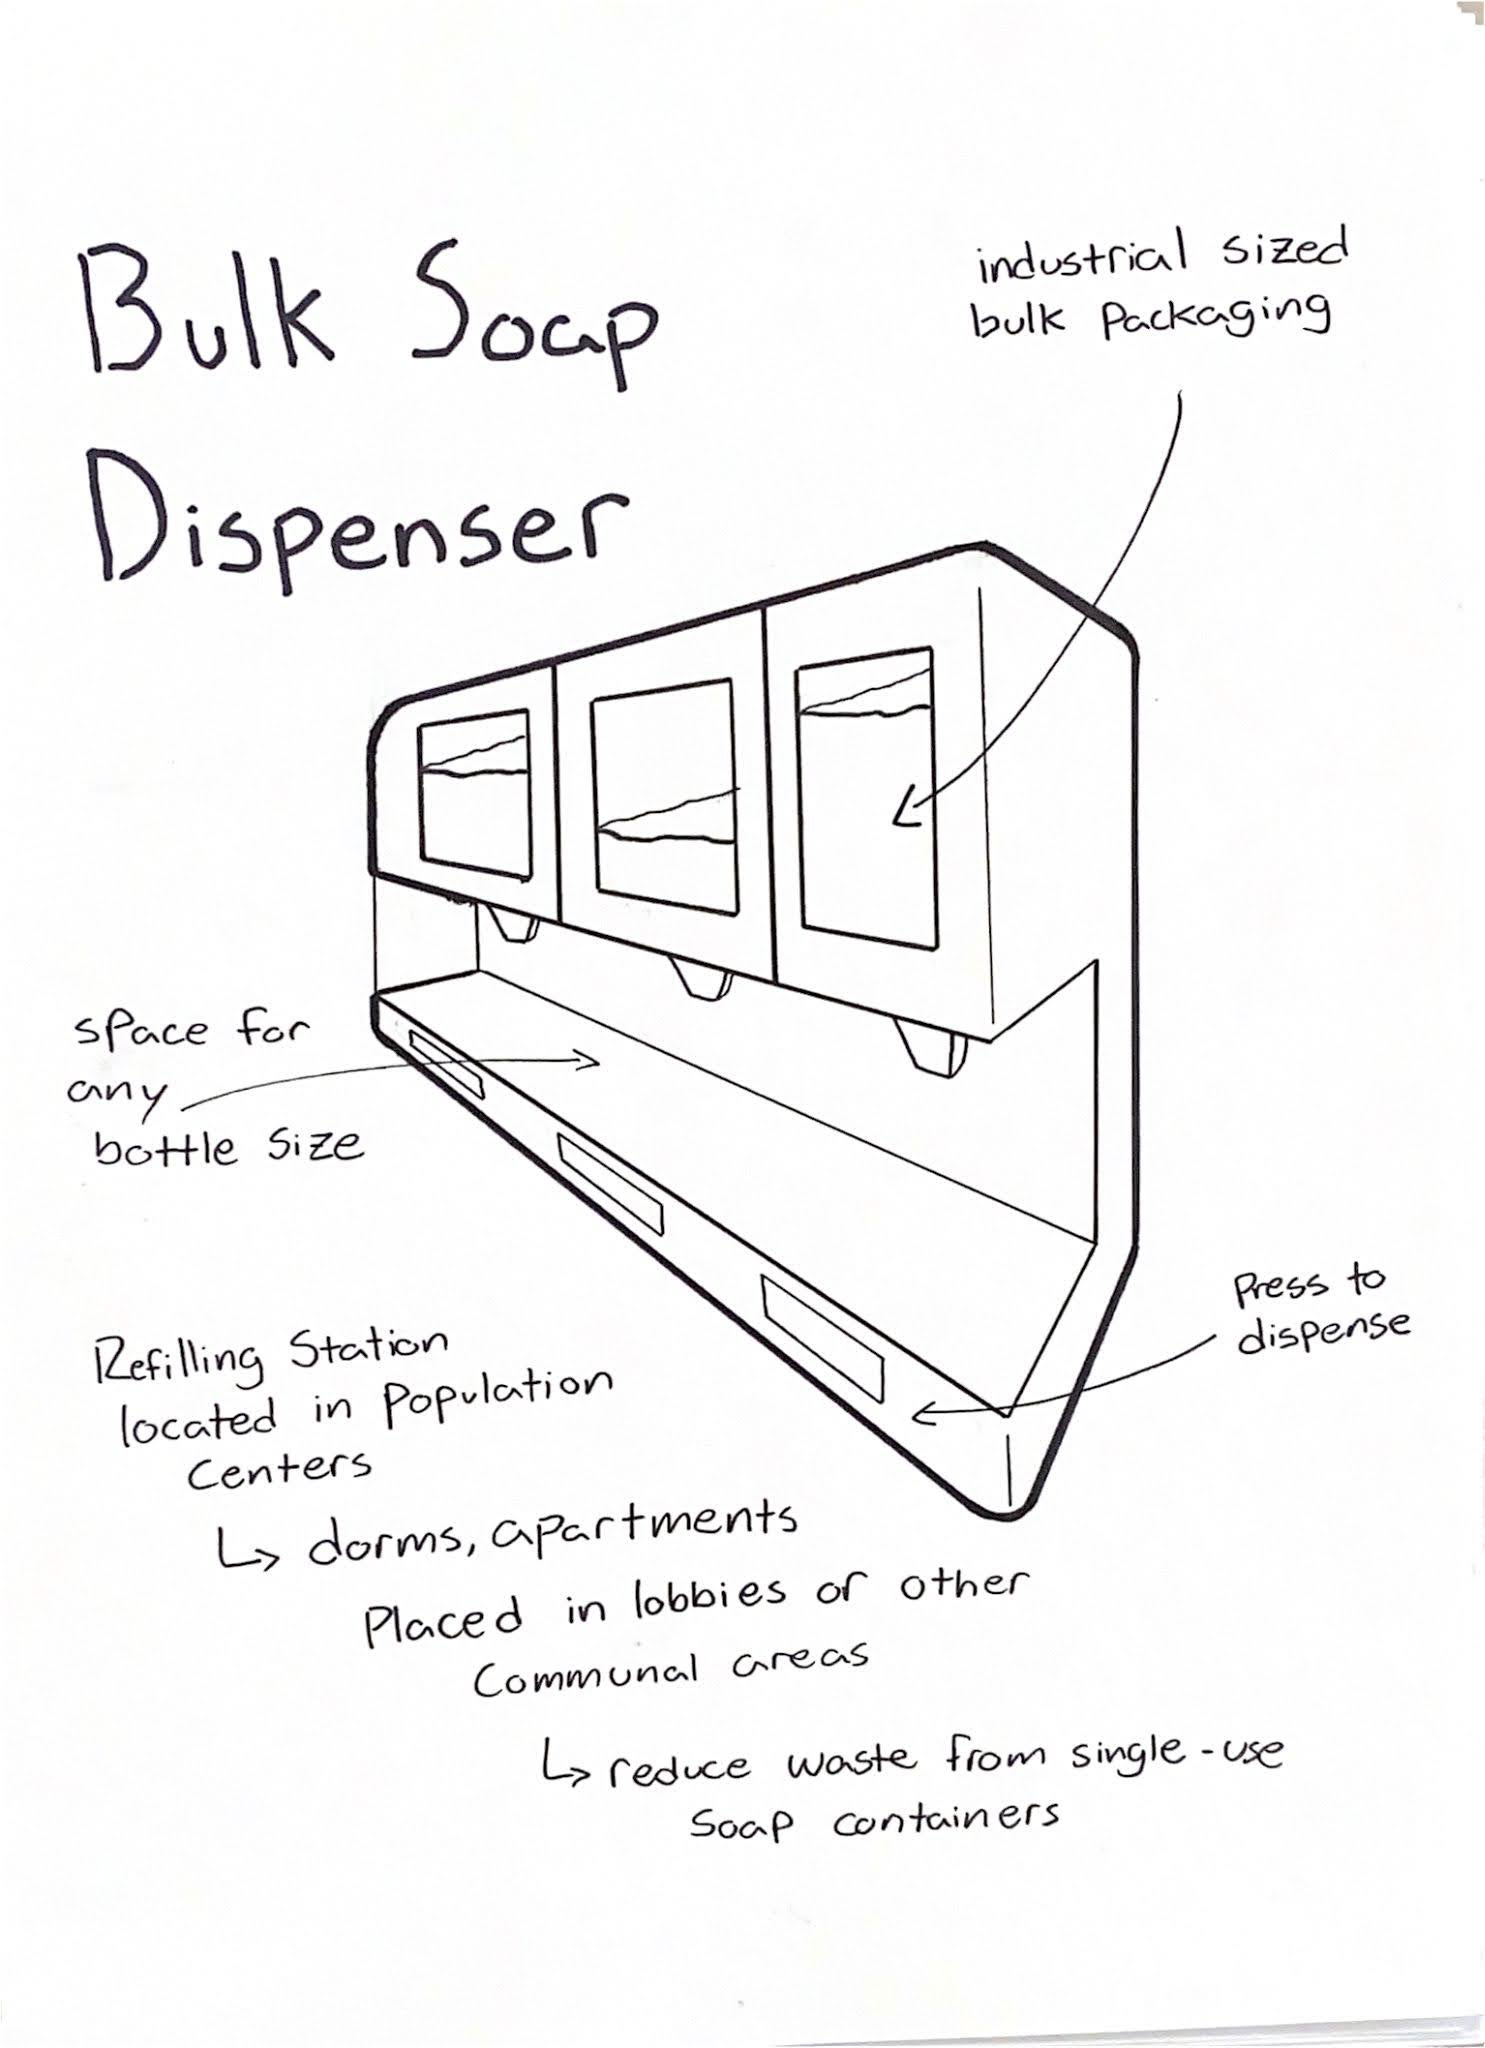 Bulk Soap
Dispenser
industrial sized
bulk Packaging
space for
any
bottle size
Press to
dispense
Refilling Station
located in Population
Centers
↳ dorms, apartments
Placed in lobbies or other
Communal areas
↳ reduce waste from single-use
Soap containers